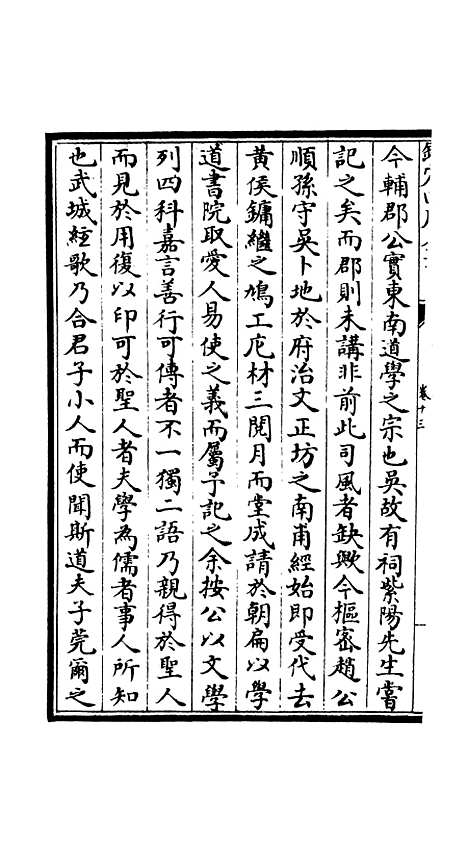 卷十三
今輔郡公實東南道學之宗也吳故有祠紫陽先生嘗
記之矣而郡則未講非前此司風者缺歟今樞密趙公
順孫守吳卜地於府治文正坊之南甫經始即受代去
黃侯鏞繼之鳩工庀材三閱月而堂成請於朝扁以學
道書院取愛人易使之義而屬予記之余按公以文學
列四科嘉言善行可傳者不一獨二語乃親得於聖人
而見於用復以印可於聖人者夫學為儒者事人所知
也武城絃歌乃合君子小人而使聞斯道夫子莞爾之